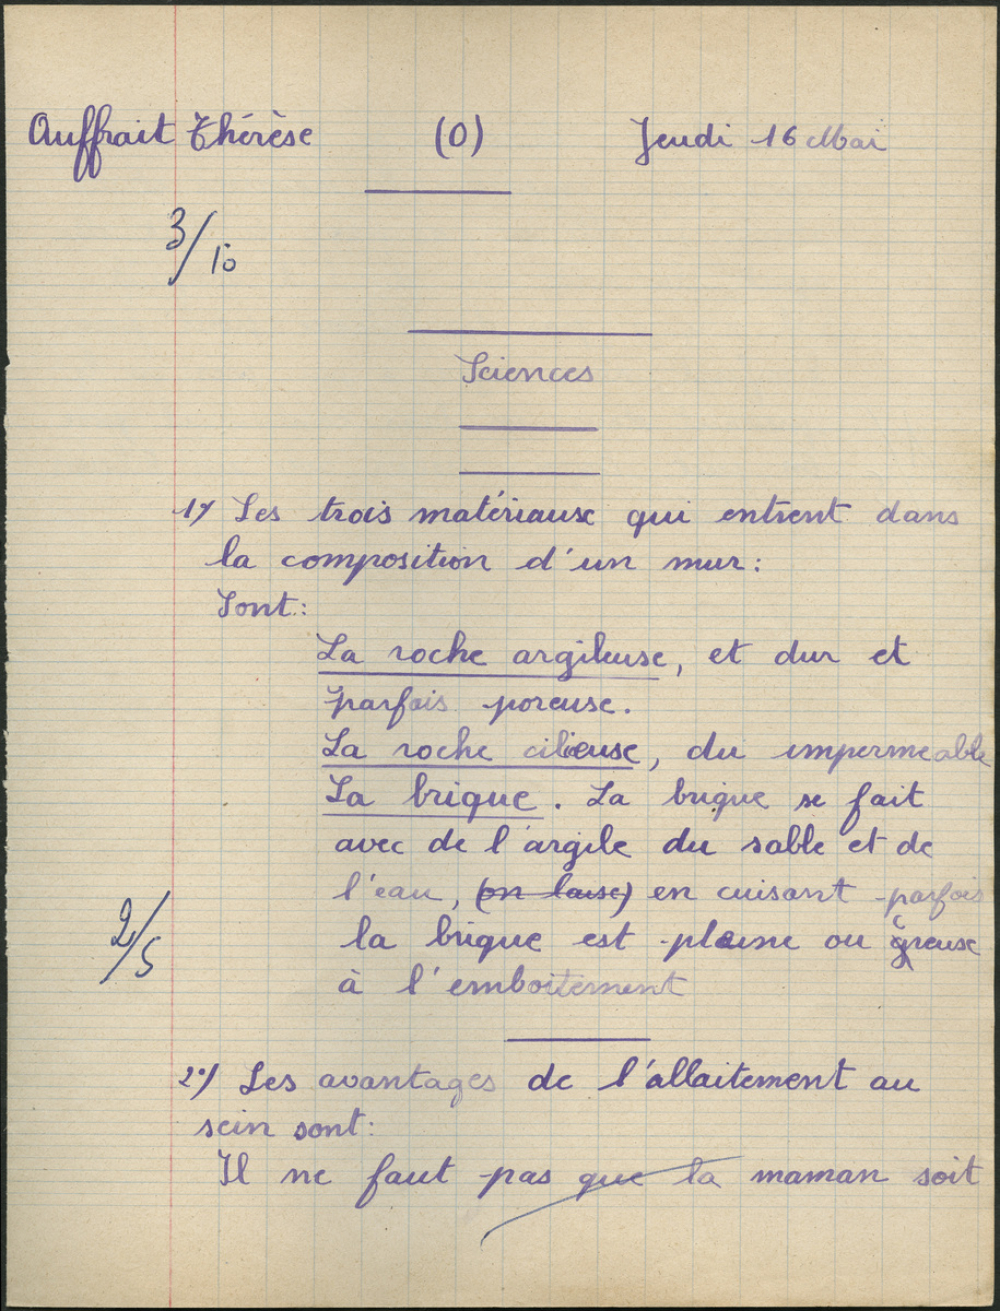 Auffrait Thérèse (0) Jeudi 16 Mai
3/10
Sciences
1°/ Les trois matériaux qui entrent dans
la composition d'un mur:
Sont:
La roche argileuse, et dur et
parfais poreuse.
La roche cilieuse, du impermeable
La brique. La brique se fait
avec de l'argile du sable et de
l'eau, (on laise) en cuisant parfois
la brique est pleine ou creuse
à l'emboitement
2/5
2°/ Les avantages de l'allaitement au
sein sont:
Il ne faut pas que la maman soit